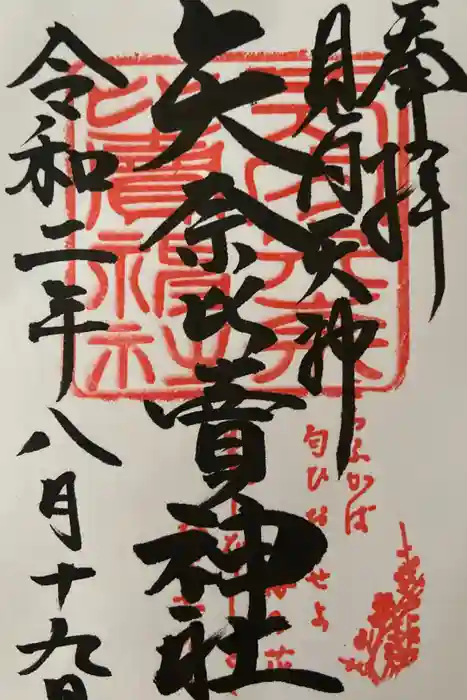 奉拝
見付天神
矢奈比賣神社
令和二年八月十九日
ふかば
匂ひおこせよ